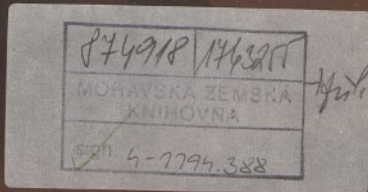 874918
MORAVSKÁ ZEMSKÁ
KNIHOVNA
sign. 4-1194.388